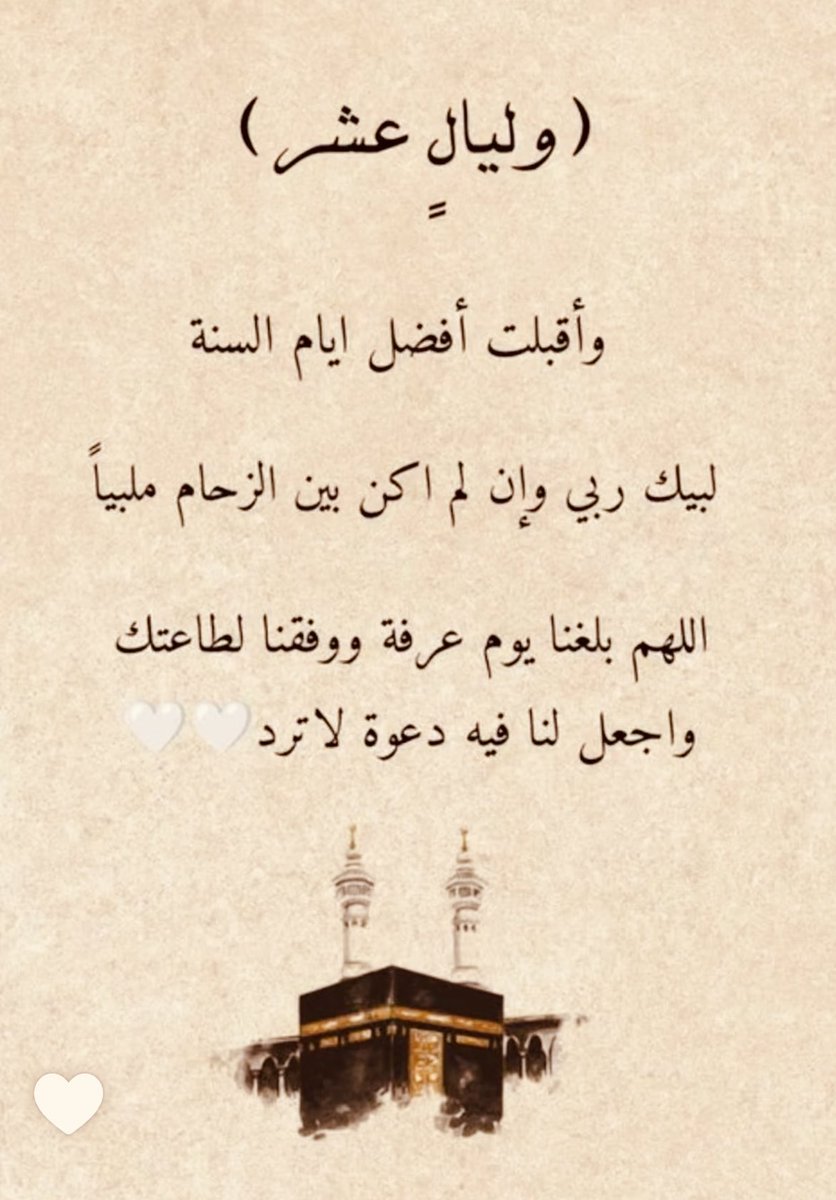 (وليالٍ عشر)
وأقبلت أفضل ايام السنة
لبيك ربي وإن لم اكن بين الزحام ملبياً
اللهم بلغنا يوم عرفة ووفقنا لطاعتك
واجعل لنا فيه دعوة لاترد🤍🤍